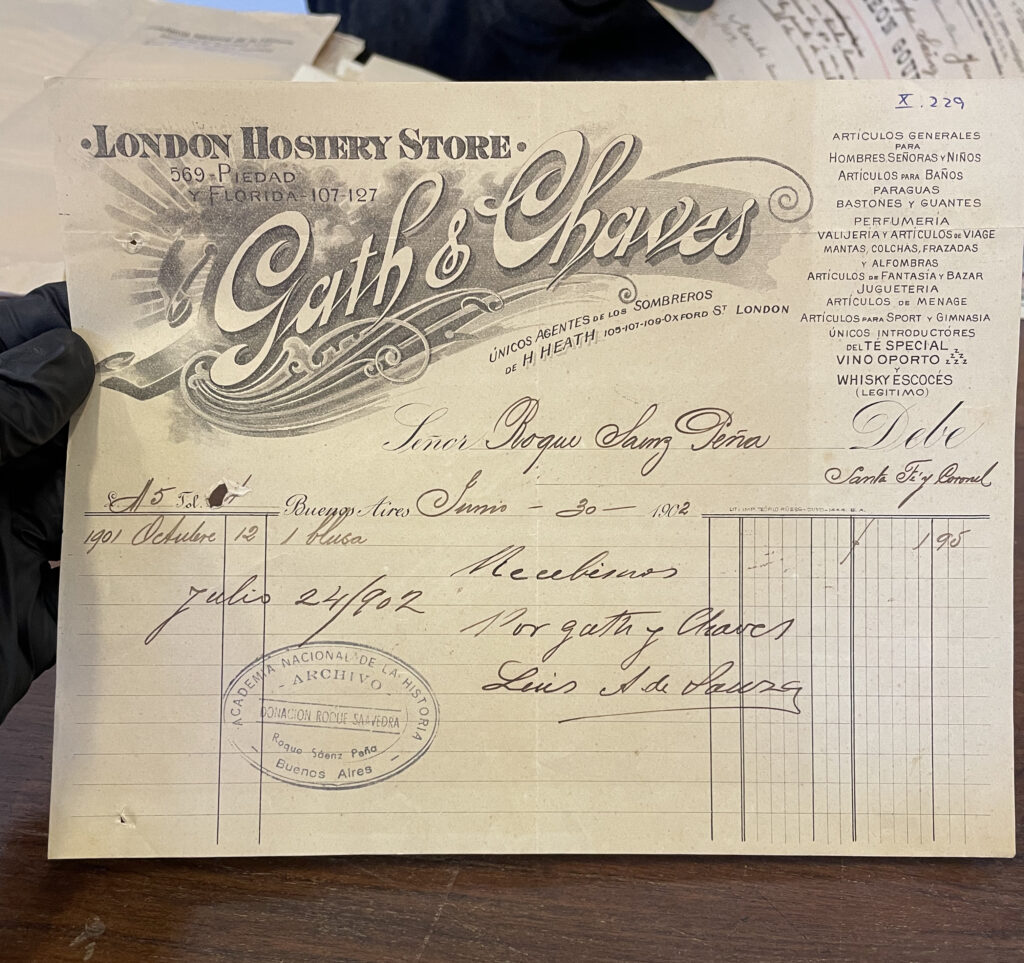 X. 229
·LONDON HOSIERY STORE·
569-PIEDAD
Y FLORIDA-107-127
Gath & Chaves
ÚNICOS AGENTES DE LOS SOMBREROS
DE H HEATH 105-107-109-OXFORD ST LONDON
ARTÍCULOS GENERALES
PARA
HOMBRES SEÑORAS Y NIÑOS
ARTÍCULOS PARA BAÑOS
PARAGUAS
BASTONES Y GUANTES
PERFUMERÍA
VALIJERÍA Y ARTÍCULOS DE VIAGE
MANTAS, COLCHAS, FRAZADAS
Y ALFOMBRAS
ARTÍCULOS DE FANTASÍA Y BAZAR
JUGUETERIA
ARTÍCULOS DE MENAGE
ARTÍCULOS PARA SPORT Y GIMNASIA
ÚNICOS INTRODUCTÓRES
DEL TÉ SPECIAL
VINO OPORTO zzzz
Y
WHISKY ESCOCÉS
(LEGITIMO)
Señor Roque Saenz Peña Debe
Santa Fé y Coronel
5 Fol.
Buenos Aires Junio - 30 - 1902
1901 Octubre 12 1 blusa 1 95
Recebimos
Julio 24/902
Por Gath y Chaves
Luis A de Souza
ACADEMIA NACIONAL DE LA HISTORIA
- ARCHIVO -
DONACION ROQUE SAAVEDRA
Roque Sáenz Peña
- Buenos Aires -